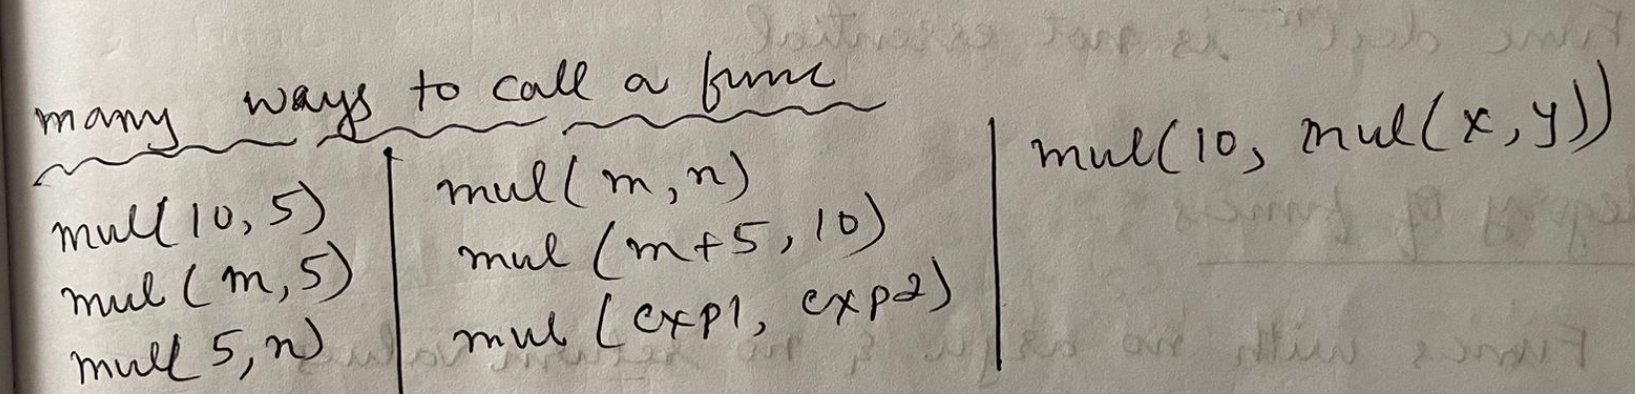 many ways to call a func
mul(10, 5)
mul(m, 5)
mul(5, n)
mul(m, n)
mul(m+5, 10)
mul(exp1, exp2)
mul(10, mul(x, y))